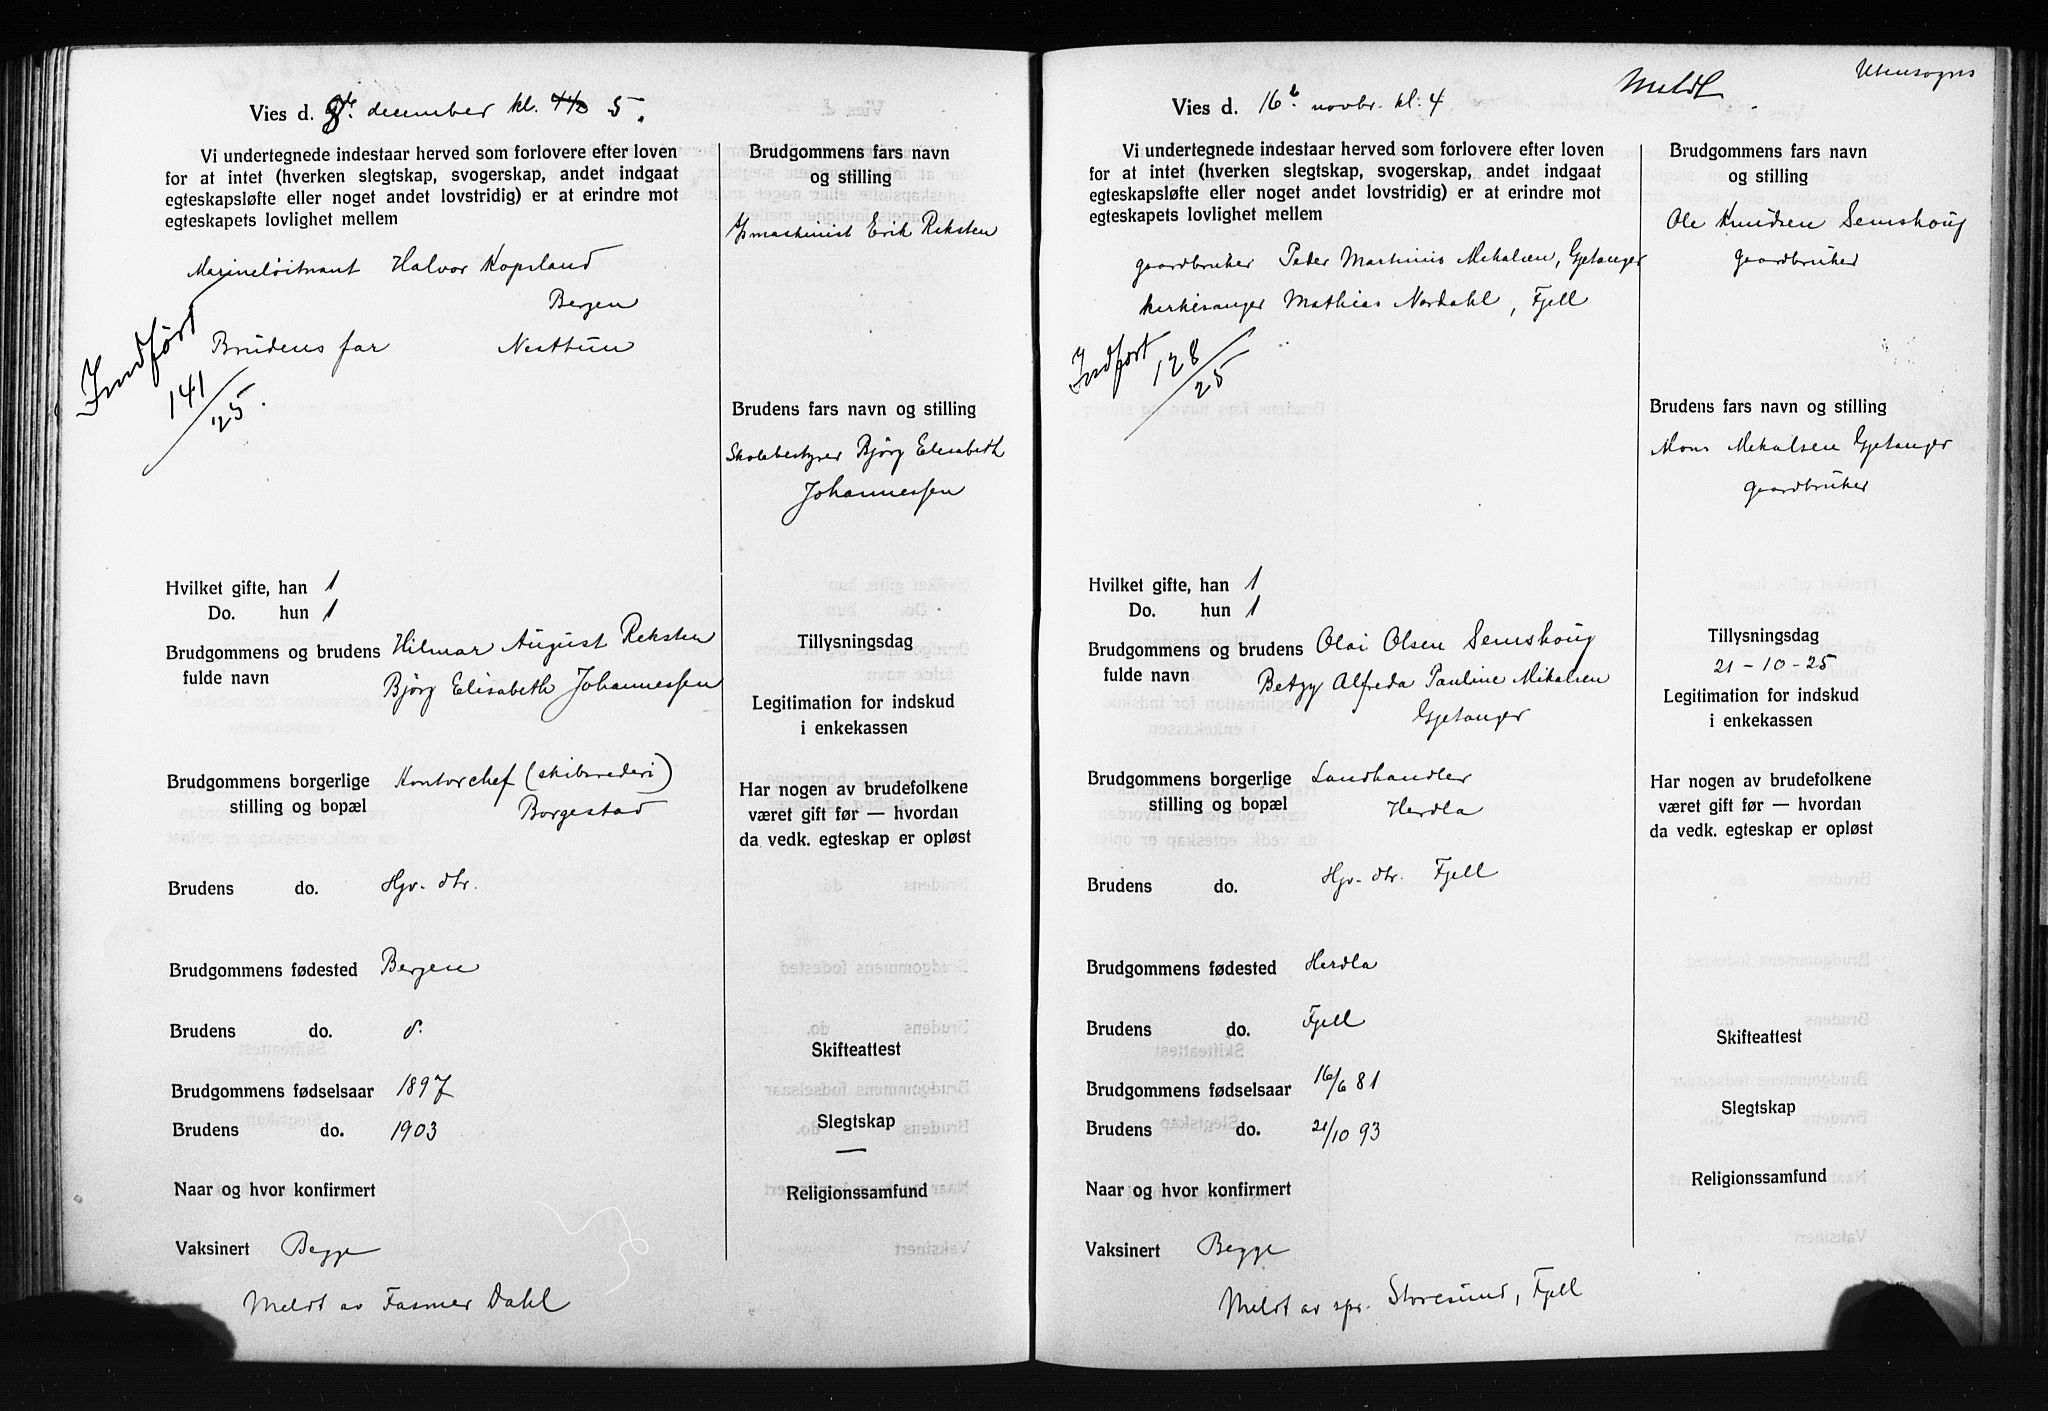 Vies d. 9de. december kl. 5.
Vi undertegnede indestaar herved som forlovere efter loven
for at intet (hverken slegtskap, svogerskap, andet indgaat
egteskapsløfte eller noget andet lovstridig) er at erindre mot
egteskapets lovlighet mellem
Marineløitnant Halvor Kopsland
Bergen
Brudens far Nesttun
Indført
141/25.
Hvilket gifte, han 1
Do. hun 1
Brudgommens og brudens Hilmar August Reksten
fulde navn Bjørg Elisabeth Johannessen
Brudgommens borgerlige Kontorchef (skibsrederi)
stilling og bopæl Borgestad
Brudens do. Hjv. dtr.
Brudgommens fødested Bergen
Brudens do. d.
Brudgommens fødselsaar 1897
Brudens do. 1903
Naar og hvor konfirmert
Vaksinert Begge
Meldt av Fasmer Dahl
Brudgommens fars navn
og stilling
Erik Reksten
Brudens fars navn og stilling
Skolebestyrer Bjørg Elisabeth
Johannessen
Tillysningsdag
Legitimation for indskud
i enkekassen
Har nogen av brudefolkene
været gift før — hvordan
da vedk. egteskap er opløst
Skifteattest
Slegtskap
—
Religionssamfund
Utensogns
Meldt
Vies d. 16. novbr. kl. 4
Vi undertegnede indestaar herved som forlovere efter loven
for at intet (hverken slegtskap, svogerskap, andet indgaat
egteskapsløfte eller noget andet lovstridig) er at erindre mot
egteskapets lovlighet mellem
gaardbruker Peder Martinus Mikalsen, Gjetanger
kirkesanger Mathias Nordahl, Fjell
Indført
128/25
Hvilket gifte, han 1
Do. hun 1
Brudgommens og brudens Olai Olsen Semshoug
fulde navn Betzy Alfreda Pauline Mikalsen
Gjetanger
Brudgommens borgerlige Landhandler
stilling og bopæl Herdla
Brudens do. Hjv. dtr. Fjell
Brudgommens fødested Herdla
Brudens do. Fjell
Brudgommens fødselsaar 16/6 81
Brudens do. 21/10 93
Naar og hvor konfirmert
Vaksinert Begge
Meldt av spr. Storesund, Fjell
Brudgommens fars navn
og stilling
Ole Knudsen Semshoug
gaardbruker
Brudens fars navn og stilling
Mons Mikalsen Gjetanger
gaardbruker
Tillysningsdag
21-10-25
Legitimation for indskud
i enkekassen
Har nogen av brudefolkene
været gift før — hvordan
da vedk. egteskap er opløst
Skifteattest
Slegtskap
Religionssamfund